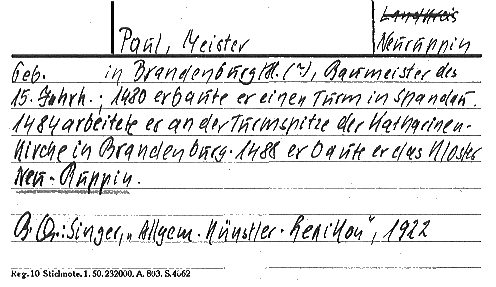 Landkreis
Paul, Meister Neuruppin
Geb. in Brandenburg/H. (?), Baumeister des
15. Jahrh.; 1480 erbaute er einen Turm in Spandau.
1484 arbeitete er an der Turmspitze der Katharinen-
kirche in Brandenburg. 1488 erbaute er das Kloster
Neu-Ruppin.
B. Qu.: Singer, „Allgem. Künstler-Lexikon", 1922
Reg. 10 Stichnote. 1. 50. 232000. A. 803. S. 4062